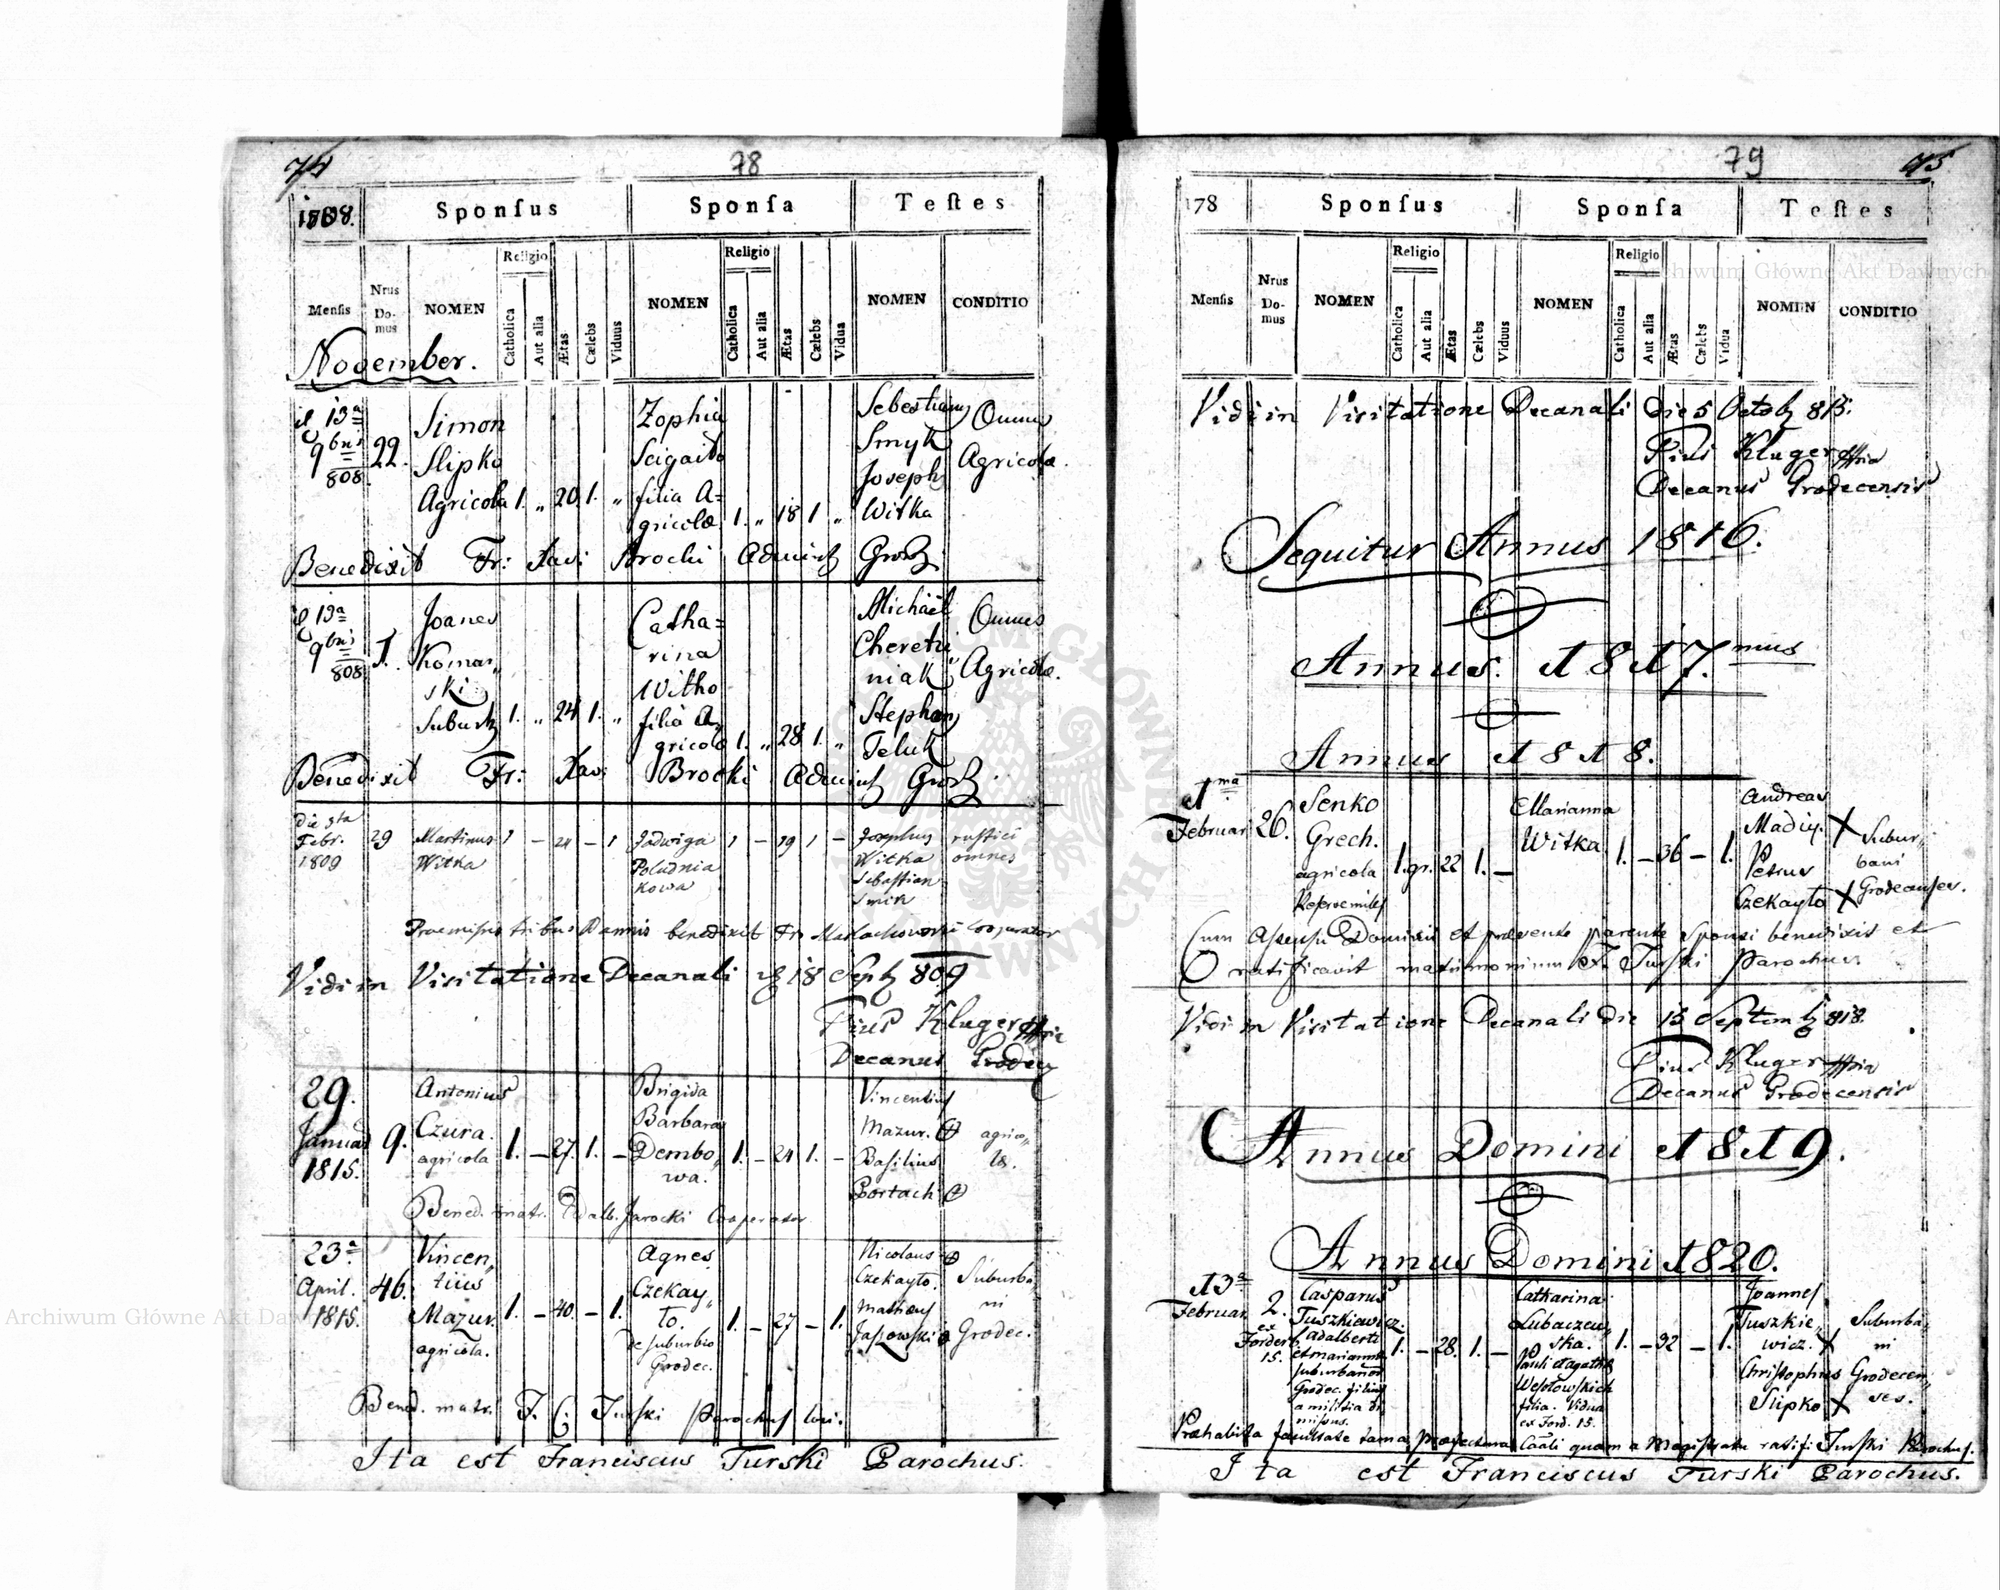 74
78
1808.
Sponſus
Sponſa
Teſtes
Menſis
Nrus Do-mus
NOMEN
Religio
Catholica
Aut alia
Ætas
Cælebs
Viduus
NOMEN
Religio
Catholica
Aut alia
Ætas
Cælebs
Vidua
NOMEN
CONDITIO
November.
d 13ª 9bris 808.
22.
Simon
Slipko
Agricola 1. „ 20 1. „
Zophia
Scigaito
filia A=
gricolæ 1. „ 18 1 „
Sebestianus
Smyk
Joseph
Witka
Omnes
Agricolæ.
Benedixit Fr: Xav: Brocki Administ Grod
d 13ª 9bris 808
1.
Joanes
Komar„
ski
Suburb 1. „ 24 1. „
Catha=
rina
Witko
filia A„
gricolæ 1. „ 28 1. „
Michael
Cheretri„
niak
Stephan
Teluk
Omnes
Agricolæ.
Benedixit Fr: Xav: Brocki Administ Grod
Die 5ta
Febr.
1809
29
Martinus 1 – 24 – 1
Witka
Jadwiga 1 – 19 1 –
Poludnia
kowa
Josephus
Witka
Sebastian
Smik
rustici
omnes
Praemissis tribus Bannis benedixit Fr. Malachowski Cooperator
Vidi in Visitatione Decanali 18 Sept 809
Pius Kluger mpria
Decanus Grodec
29.
Januar
1815.
9.
Antonius
Czura.
agricola 1. – 27. 1. –
Brigida
Barbara
Dembo„
wa. 1. – 24 1. –
Vincentius
Mazur.
Basilius
Bortach
agrico„
læ.
Bened. matr. Adalb. Jarocki Cooperator
23ª
April.
1815.
46.
Vincen„
tius
Mazur. 1. – 40. – 1.
agricola.
Agnes
Czekay„
to.
de suburbio
Grodec. 1. – 27 – 1.
Nicolaus
Czekayto.
Matheus
Jaszowski
Suburba„
ni
Grodec.
Bened. matr. F. C. Turski Parochus loci.
Ita est Franciscus Turski Parochus.
79
75
178
Sponſus
Sponſa
Teſtes
Menſis
Nrus Do-mus
NOMEN
Religio
Catholica
Aut alia
Ætas
Cælebs
Viduus
NOMEN
Religio
Catholica
Aut alia
Ætas
Cælebs
Vidua
NOMEN
CONDITIO
Vidi in Visitatione Decanali die 5 Octob 815.
Pius Kluger mpria
Decanus Grodecensis
Sequitur Annus 1816.
Annus. 1817.mus
Annus 1818.
1ma
Februar.
26.
Senko
Grech.
agricola 1.gr. 22 1. –
Marianna
Witka 1. – 36 – 1.
Andreas
Madiy.
Petrus
Czekayto
Subur„
bani
Grodecenses.
Cum assensu Dominii et præsente parente sponsi benedixit et
ratificavit matrimonium F. Turski Parochus
Vidi in Visitatione Decanali die 15 Septemb 818.
Pius Kluger mpria
Decanus Grodecensis
Annus Domini 1819.
Annus Domini 1820.
13ª
Februar.
2.
ex
15.
Casparus
Tuszkiewicz.
Adalberti
et Mariannæ
suburbanor
Grodec. filius
a militia di
missus.
1. – 28. 1. –
Catharina
Lubaczew„
ska. 1. – 32 – 1.
Pauli et Agathæ
Wesołowskich
filia. Vidua
ex Ford. 15.
Joannes
Tuszkie„
wicz.
Christophus
Slipko
Suburba„
ni
Grodecen„
ses.
Præhabita facultate tam a Præfectura Cæsali quam a Magistratu ratifi Turski Parochus.
Ita est Franciscus Turski Parochus.
Archiwum Główne Akt Dawnych
Archiwum Główne Akt Dawnych
ARCHIWUM GŁÓWNE AKT DAWNYCH